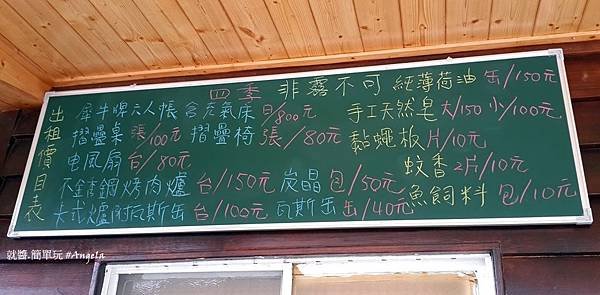 四季 非霧不可 純薄荷油 缶/150元
出租價目表
犀牛牌六人帳含充氣床 日/800元 手工天然皂 大/150 小/100元
摺疊桌 張/100元 摺疊椅 張/80元 黏蠅板 片/10元
电風扇 台/80元 蚊香 2片/10元
不銹鋼烤肉爐 台/150元 炭晶 包/50元 魚飼料 包/10元
卡式爐附瓦斯缶 台/100元 瓦斯缶 缶/40元
就醬.簡單玩 #Angela